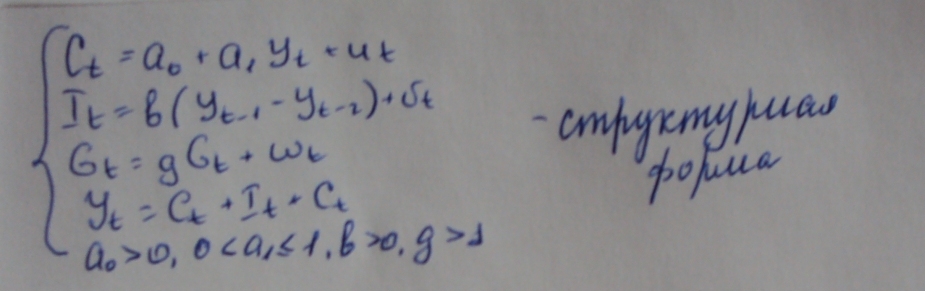 C_t = a_0 + a_1 y_t + u_t
I_t = b(y_{t-1} - y_{t-2}) + v_t
G_t = g G_t + w_t
y_t = C_t + I_t + C_t
a_0 > 0, 0 < a_1 ≤ 1, b > 0, g > 1
- структурная
форма